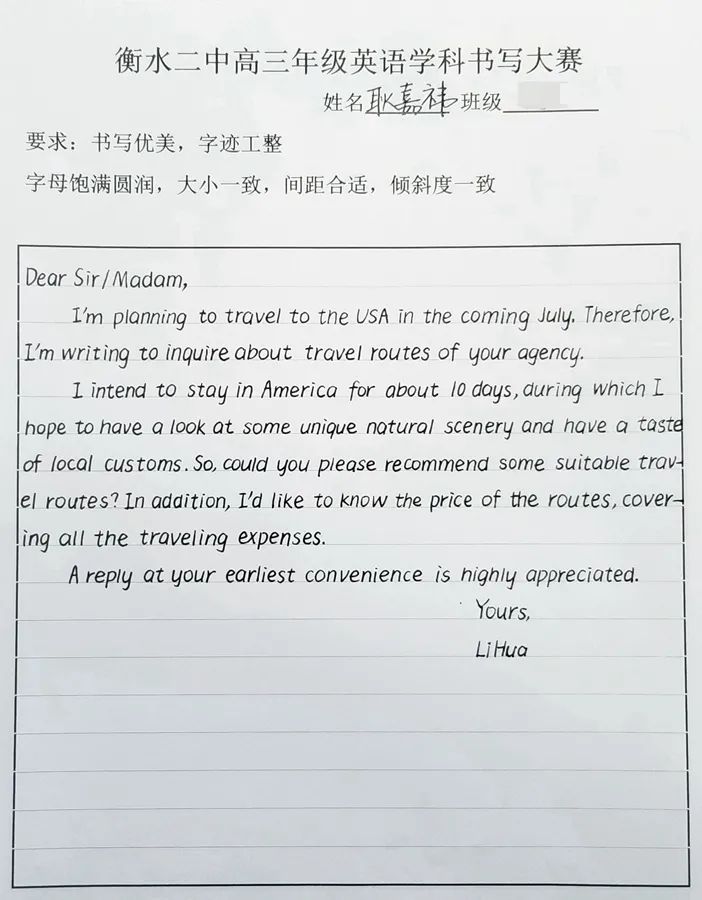 衡水二中高三年级英语学科书写大赛
姓名耿嘉祎班级
要求：书写优美，字迹工整
字母饱满圆润，大小一致，间距合适，倾斜度一致
Dear Sir/Madam,
I'm planning to travel to the USA in the coming July. Therefore,
I'm writing to inquire about travel routes of your agency.
I intend to stay in America for about 10 days, during which I
hope to have a look at some unique natural scenery and have a taste
of local customs. So, could you please recommend some suitable trav-
el routes? In addition, I'd like to know the price of the routes, cover-
ing all the traveling expenses.
A reply at your earliest convenience is highly appreciated.
Yours,
Li Hua